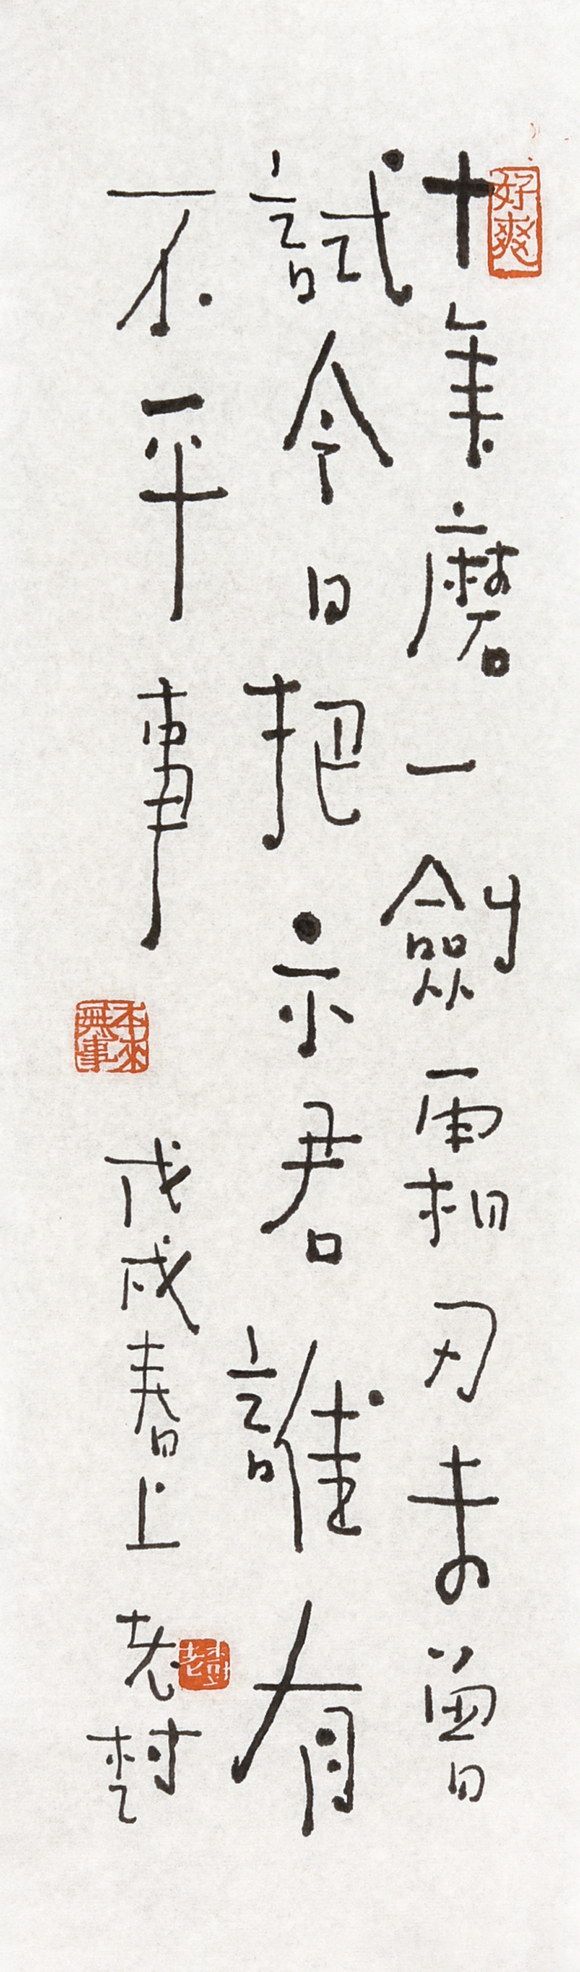 好爽
十年磨一劍霜刃未曾
試今日把示君誰有
不平事
本來無事
戊戌春上老樹
老樹